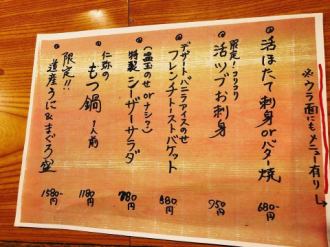 ※ウラ面にもメニュー有り↓
・活ほたて刺身orバター焼
680-円
限定!コリコリ
・活ツブお刺身
950円
デザート バニラアイスのせ
・フレンチトーストバゲット
880円
(温玉のせorナシ?)
・特製シーザーサラダ
780円
仁弥の
・もつ鍋 1人前
1180円
限定!!
・道産うに&まぐろ盛
1580-円